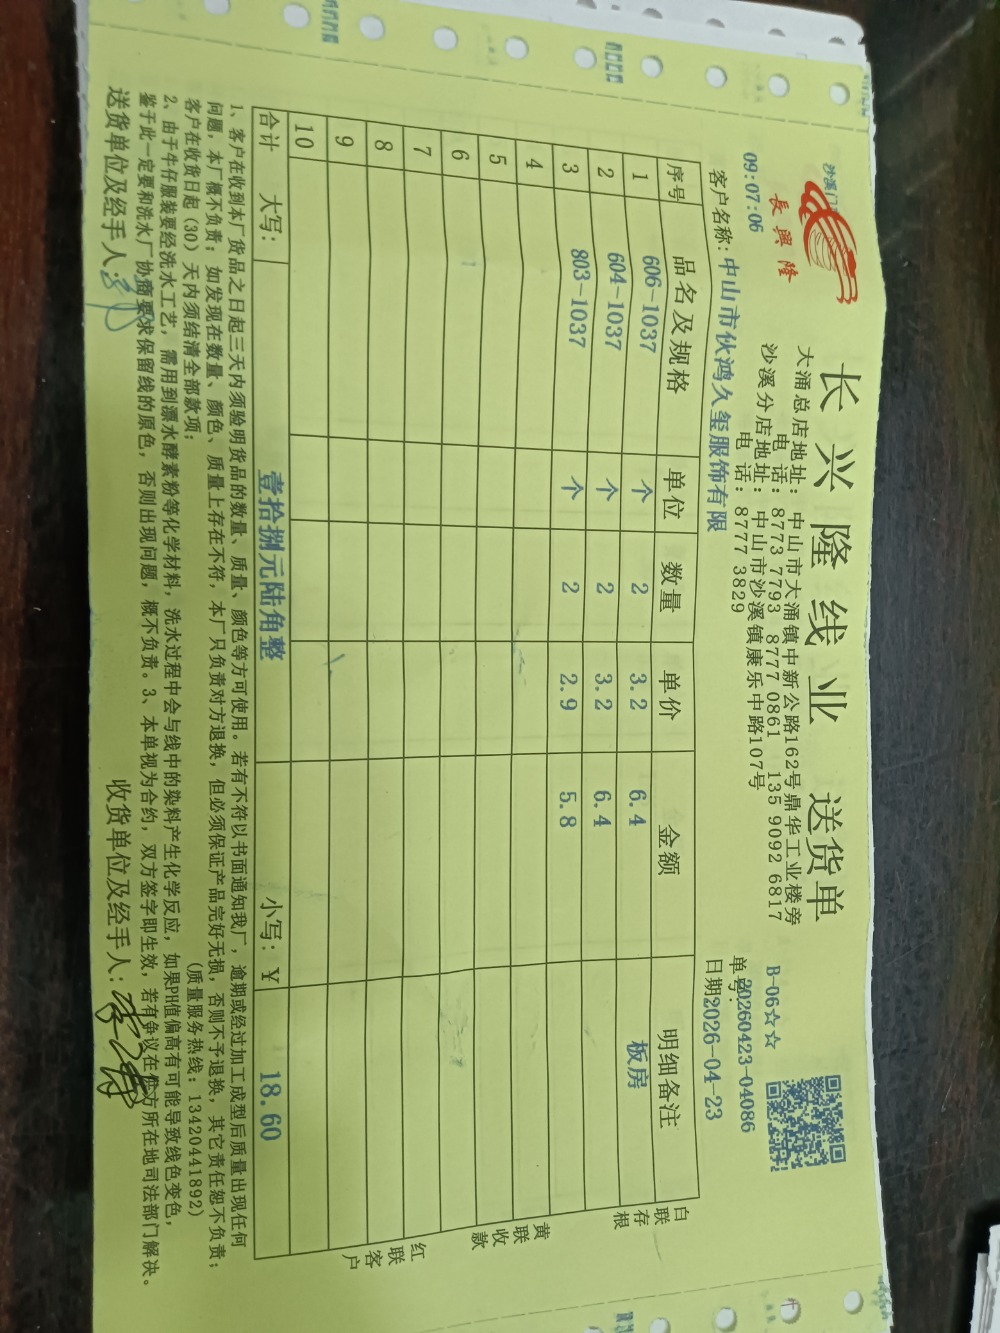 长兴隆线业 送货单
長興隆
沙溪门
09:07:06
大涌总店地址：中山市大涌镇中新公路162号鼎华工业楼旁
电话：8773 7793 8777 0861 135 9092 6817
沙溪分店地址：中山市沙溪镇康乐中路107号
电话：8777 3829
B-06☆☆
单号：20260423-04086
客户名称：中山市伙鸿久玺服饰有限
日期2026-04-23
序号 品名及规格 单位 数量 单价 金额 明细备注
1 606-1037 个 2 3.2 6.4 板房
2 604-1037 个 2 3.2 6.4
3 803-1037 个 2 2.9 5.8
4
5
6
7
8
9
10
合计 大写：壹拾捌元陆角整 小写：¥ 18.60
白联存根
黄联收款
红联客户
1、客户在收到本厂货品之日起三天内须验明货品的数量、质量、颜色等方可使用。若有不符以书面通知我厂，逾期或经过加工成型后质量出现任何
问题，本厂概不负责；如发现在数量、颜色、质量上存在不符，本厂只负责对方退换，但必须保证产品完好无损，否则不予退换，其它责任恕不负责；
客户在收货日起（30）天内须结清全部款项； （质量服务热线：13420441892）
2、由于牛仔服装要经洗水工艺，需用到漂水酵素粉等化学材料，洗水过程中会与线中的染料产生化学反应，如果PH值偏高有可能导致线色变色，
鉴于此一定要和洗水厂协商要求保留线的原色，否则出现问题，概不负责。3、本单视为合约，双方签字即生效，若有争议在供方所在地司法部门解决。
送货单位及经手人： 收货单位及经手人：